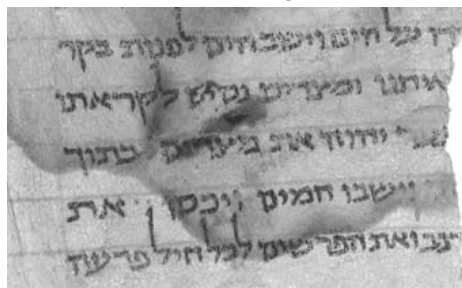 דו על הים וישב הים לפנות בקר
איתנו ומצרים לקראתו
יהוה את מצרים בתוך
וישבו המים ויכסו את
רכב ואת הפרשים לכל חיל פרעה